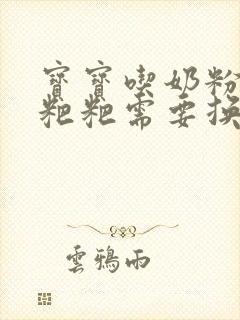 寶寶喫奶粉
粑粑需要換
雲鴉雨